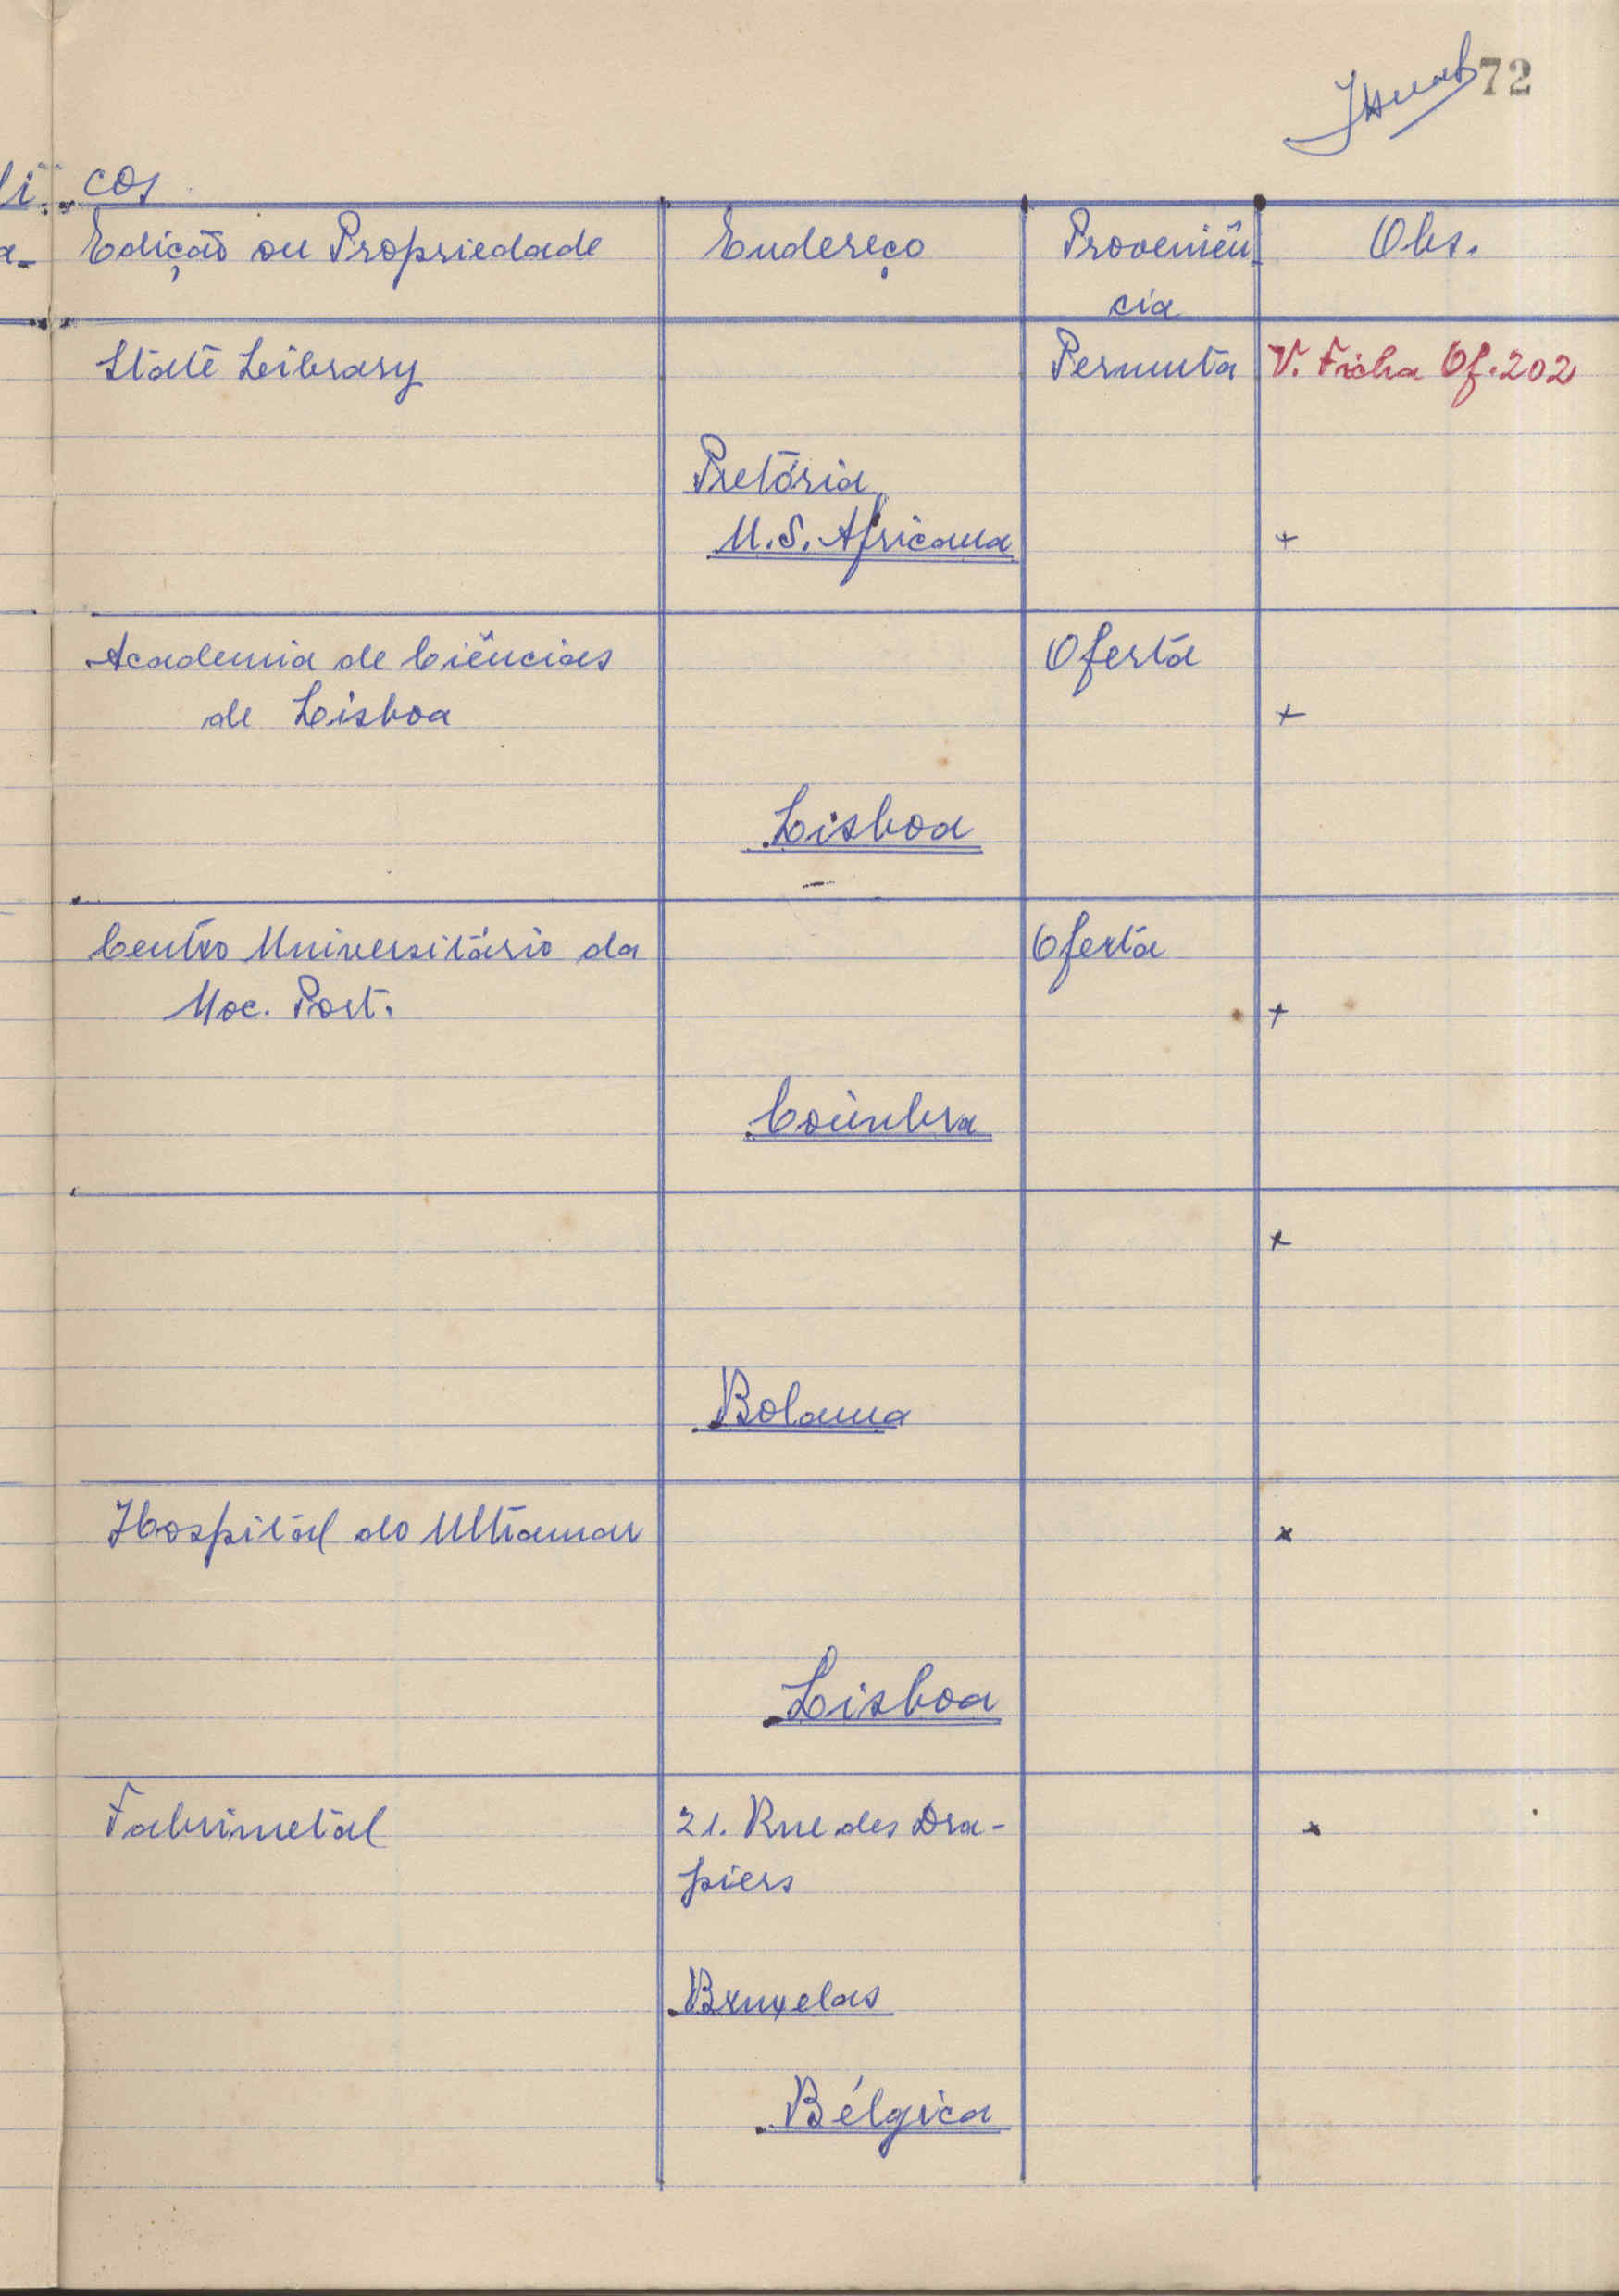 72
cos
Edição ou Propriedade Endereço Proveniên
cia Obs.
State Library Permuta V. Ficha Of. 202
Pretória
U.S. Africana +
Academia de Ciências Oferta
de Lisboa +
Lisboa
Centro Universitário da Oferta
Moc. Port. +
Coimbra
+
Bolama
Hospital do Ultramar x
Lisboa
Fabrimetal 21. Rue des Dra-
piers x
Bruxelas
Bélgica